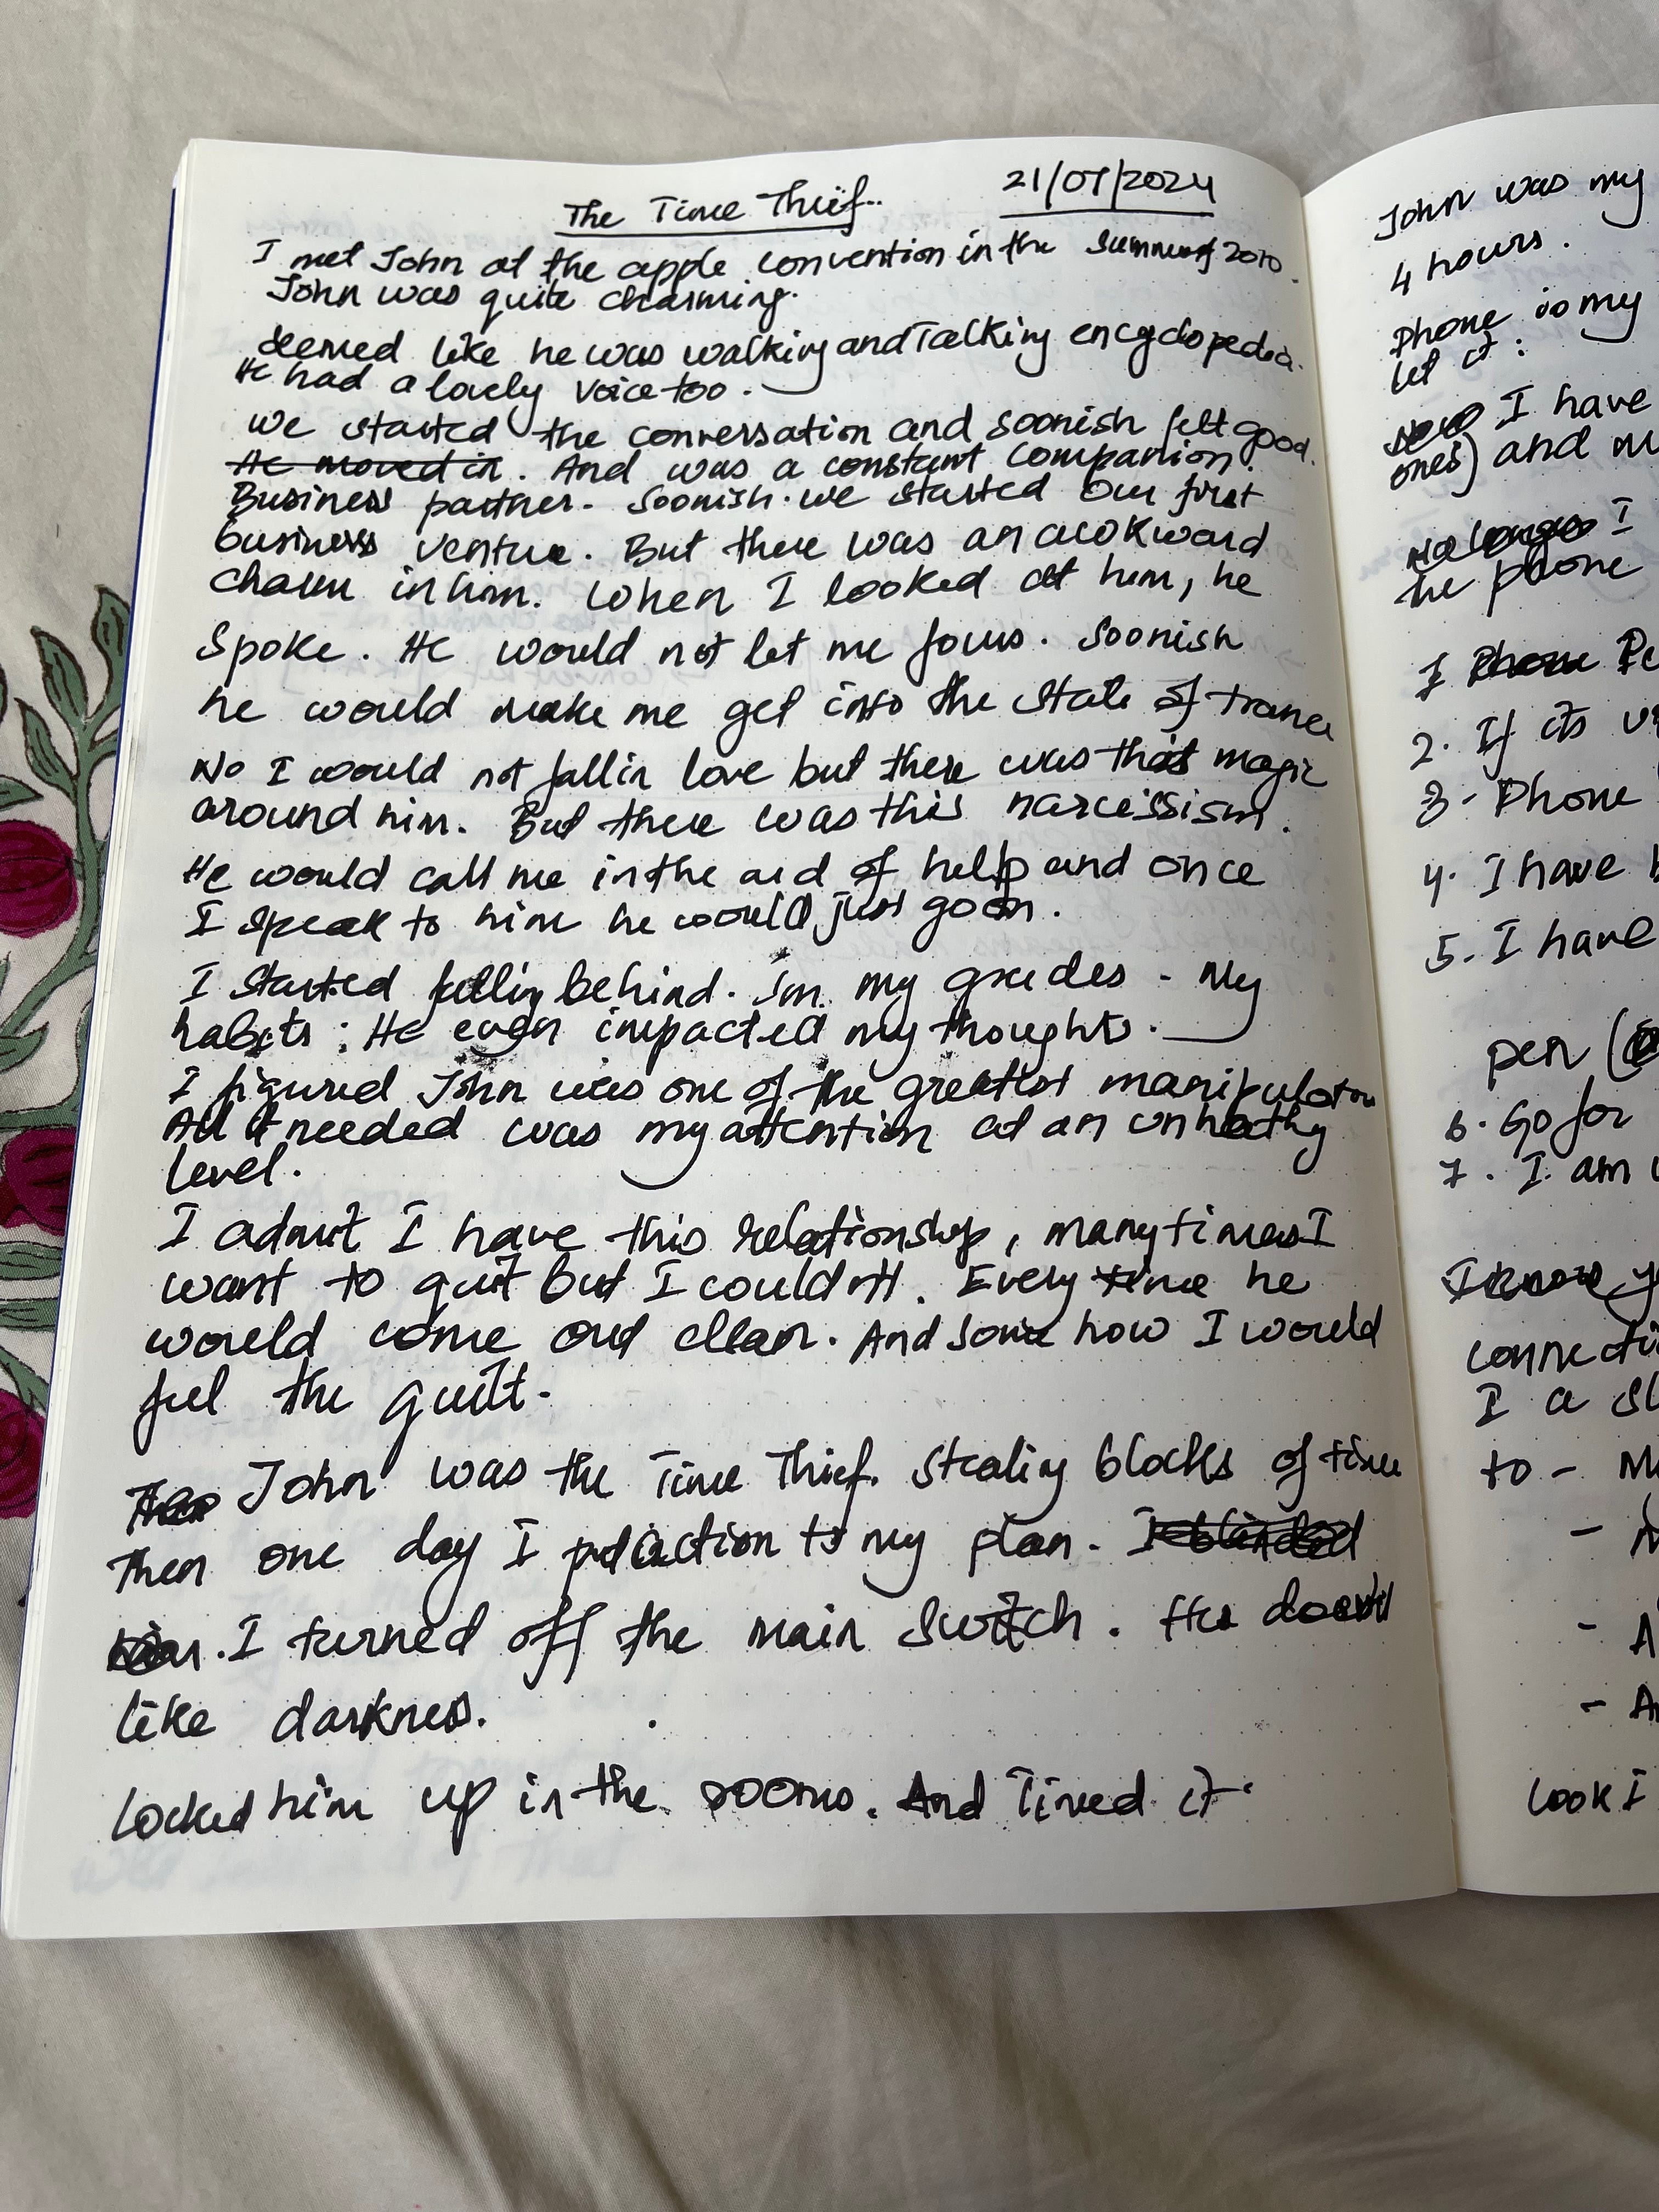 The Time Thief..
21/07/2024
I met John at the apple convention in the Summer of 2010.
John was quite charming.
Seemed like he was walking and Talking encyclopedia.
He had a lovely voice too.
We started the conversation and soonish felt good.
He moved in. And was a constant companion.
Business partner. Soonish. we started our first
business venture. But there was an awkward
charm in him. When I looked at him, he
spoke. He would not let me focus. Soonish
he would make me get into the state of trance
No I would not fall in love but there was this magic
around him. But there was this narcissism.
He would call me in the aid of help and once
I speak to him he would just go on.
I started falling behind. In my grades - My
habits: He even impacted my thoughts.
I figured John was one of the greatest manipulator
All needed was my attention at an unheathy
level.
I admit I have this relationship, many times I
want to quit but I couldn't. Every time he
would come out clean. And some how I would
feel the guilt.
John was the Time Thief. Stealing blocks of time
Then one day I put action to my plan. I blinded
him. I turned off the main switch. He doesn't
like darkness.
Locked him up in the rooms. And Timed it.
John was my
4 hours.
Phone is my
let it:
I have
ones) and
No longer I
the phone
1 Phone
2. If its
3. Phone
4. I have
5. I have
pen (
6. Go for
7. I am
I know
I a
to -
Look I